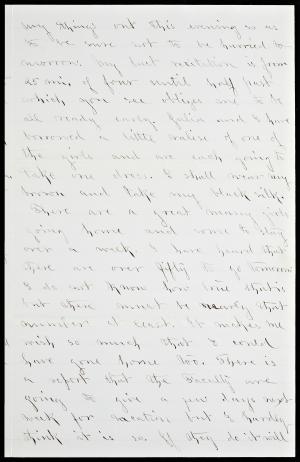 my things out this evening so as
to be sure not to be hurried to-
morrow. My last recitation is from
25 min. of four until half past
which you see obliges me to be
all ready early. Julia and I have
borrowed a little valise of one of
the girls and are each going to
take one dress. I shall wear my
brown and take my black silk.
There are a great many girls
going home and some to stay
over a week. I have heard that
there are over fifty to go tomorrow
I do not know how true that is
but there must be nearly that
number at least. It makes me
wish so much that I could
have gone home too. There is
a report that the Faculty are
going to give a few days next
week for vacation but I hardly
think it is so. If they do it will